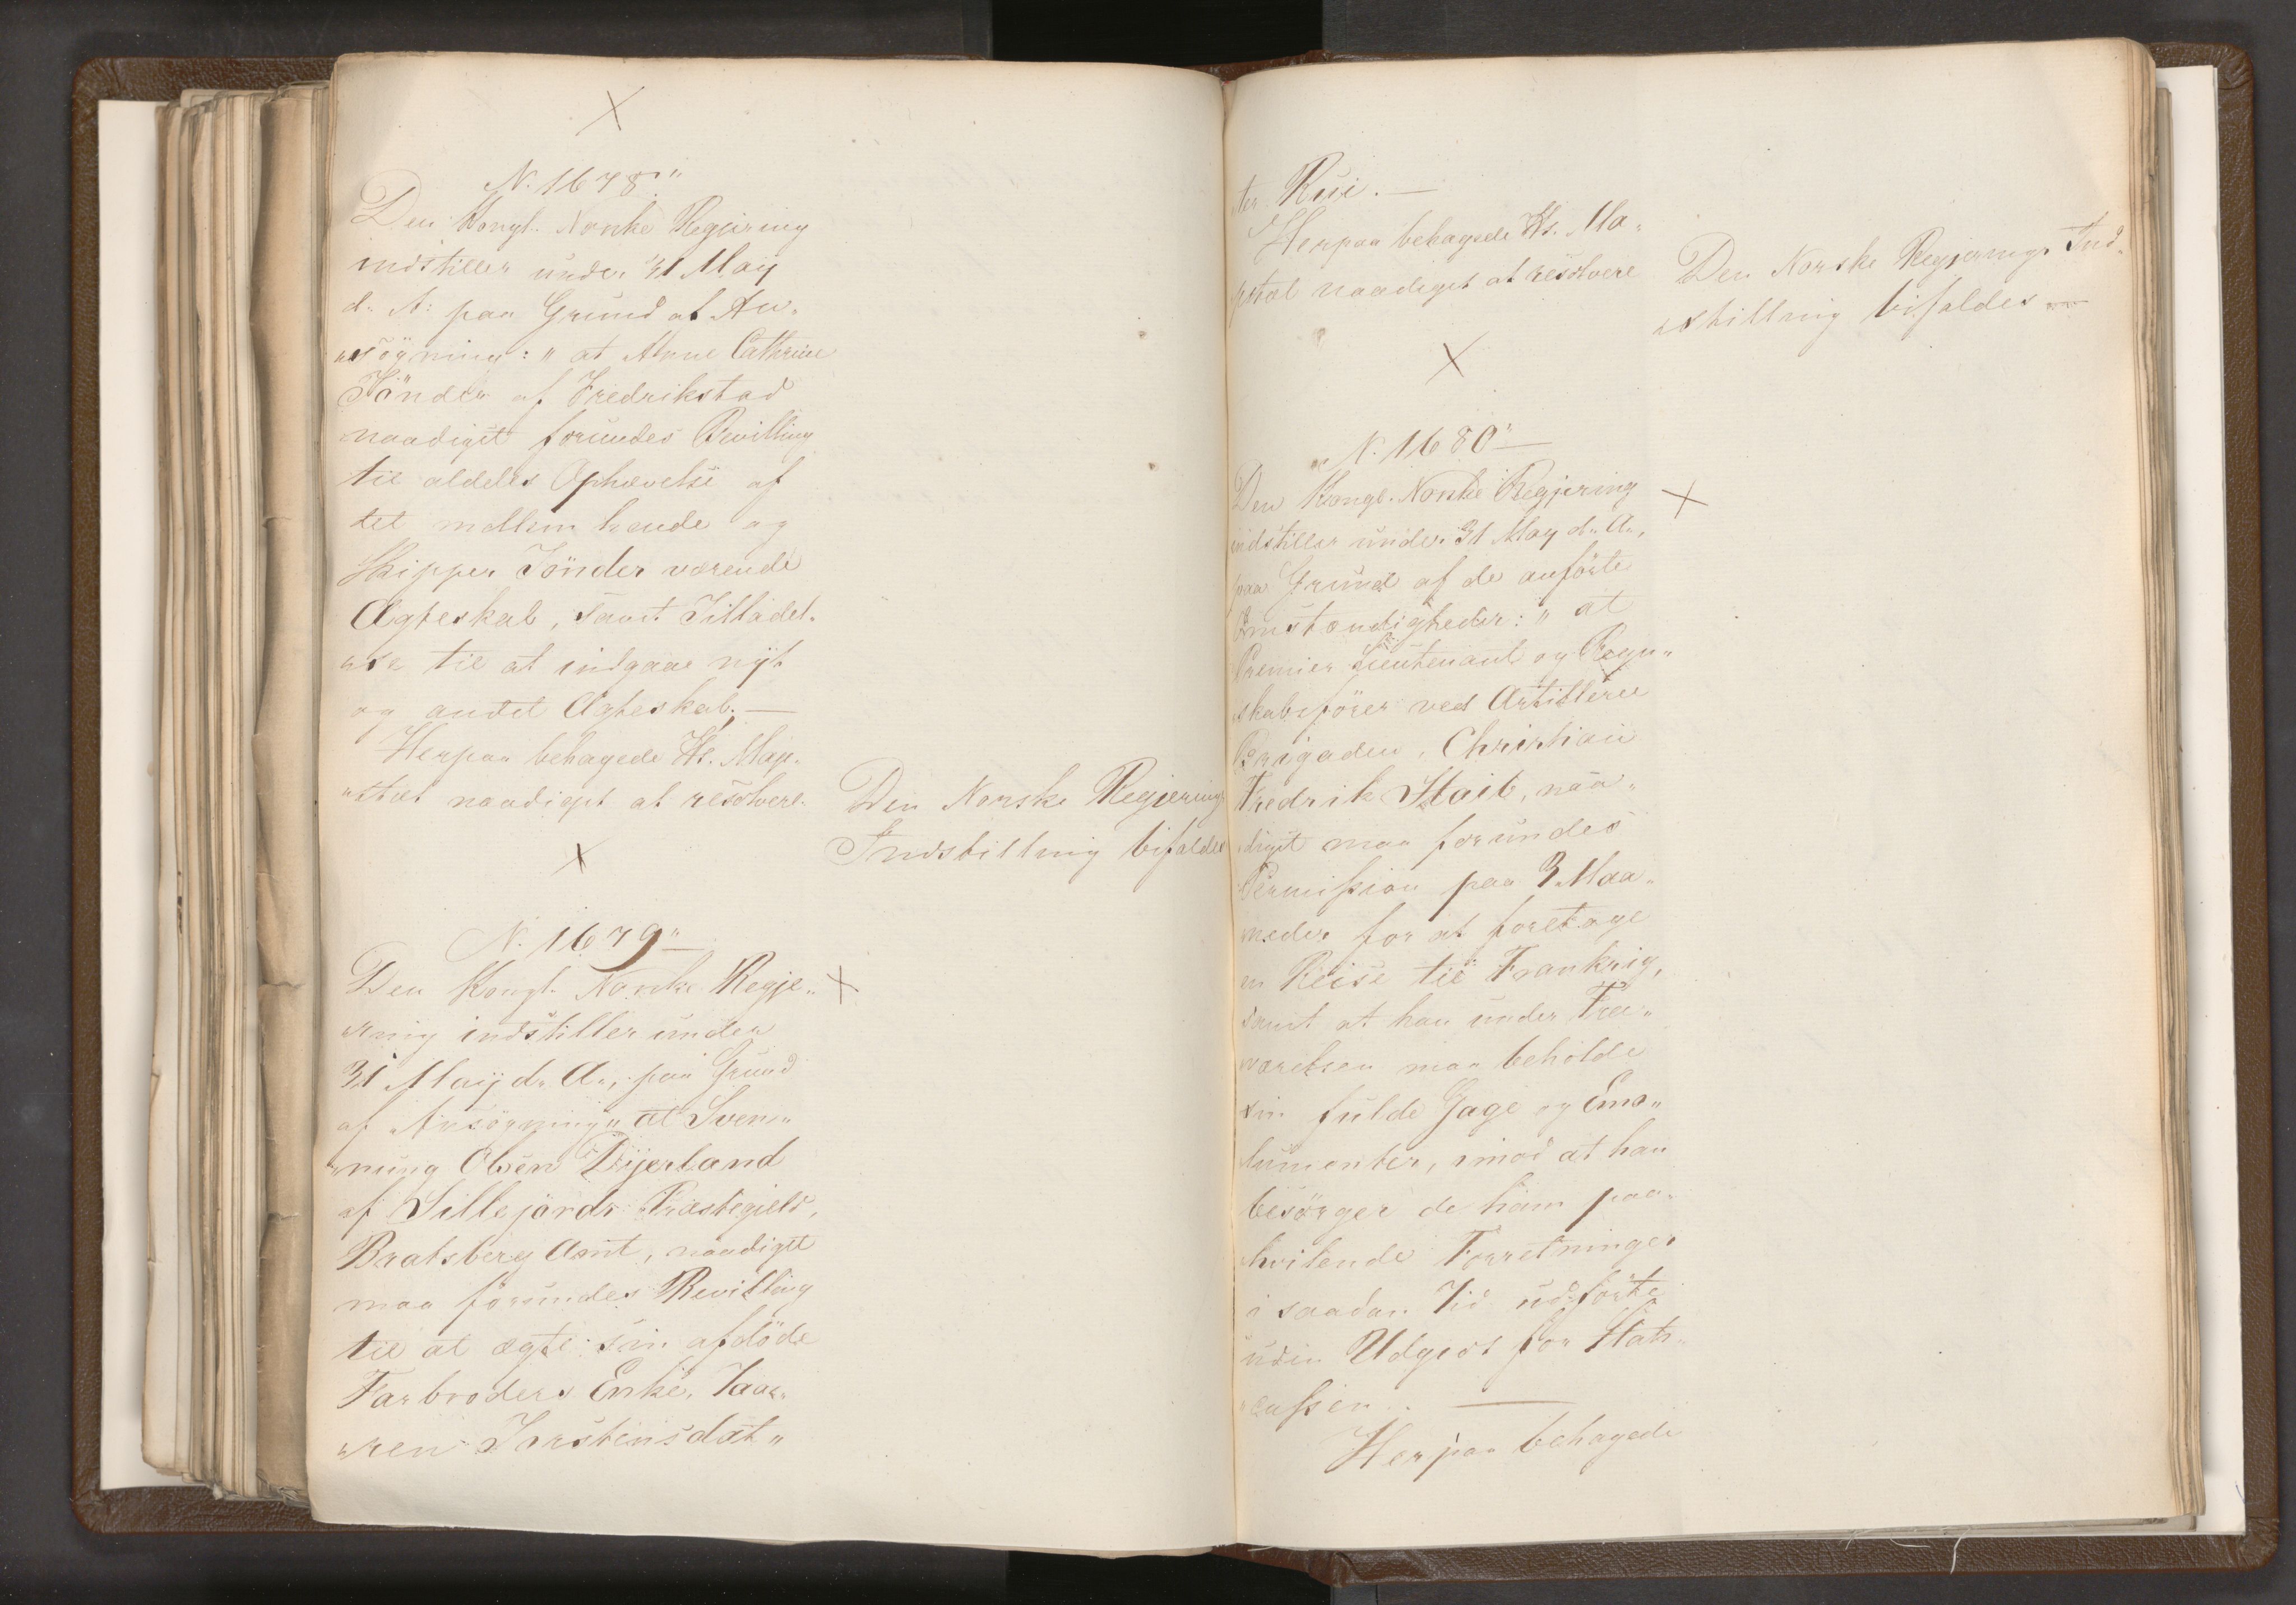 N. 1678"
Den Kongl. Norske Regjering
indstiller under 31 May
d: A: paa Grund af An„
„søgning: „at Anne Cathrine
Tönder af Fredrikstad
naadigst forundes Bevilling
til aldeles Ophævelse af
det mellem hende og
Skipper Tönder værende
Ægteskab, samt Tilladel„
„se til at indgaae nyt
og andet Ægteskab. —
Herpaa behagede Hs. Maje„
„stæt naadigst at resolvere.
Den Norske Regjerings
Indstilling bifaldes
N. 1679"
Den Kongl. Norske Regje„
„ring indstiller under
31 Maij d. A., paa Grund
af Ansøgning „at Sven„
„nung Olsen
af Sillejords Præstegjeld,
Bratsberg Amt, naadigst
maa forundes Bevilling
til at ægte sin afdöde
Farbroders Enke, Taar„
„ren Torstensdat„
ter Rui. —
Herpaa behagede Hs. Ma„
jestæt naadigst at resolvere
Den Norske Regjerings Ind„
„stilling bifaldes
N. 1680"
Den Kongl. Norske Regjering
indstiller under 31 May d. A.,
paa Grund af de anförte
Omstændigheder: „at
Premier Lieutenant og Regn„
„skabsförer ved Artillerie
Brigaden, Christian
Fredrik Staib, naa„
digst maa forundes
Permission paa 3 Maa„
neder for at foretage
en Reise til Frankrig,
samt at han under Fra„
værelsen maa beholde
sin fulde Gage og Emo„
lumenter, imod at han
besörger de ham paa„
hvilende Forretninger
i saadan Tid udförte
uden Udgift for Stats„
„cassen. —
Herpaa behagede